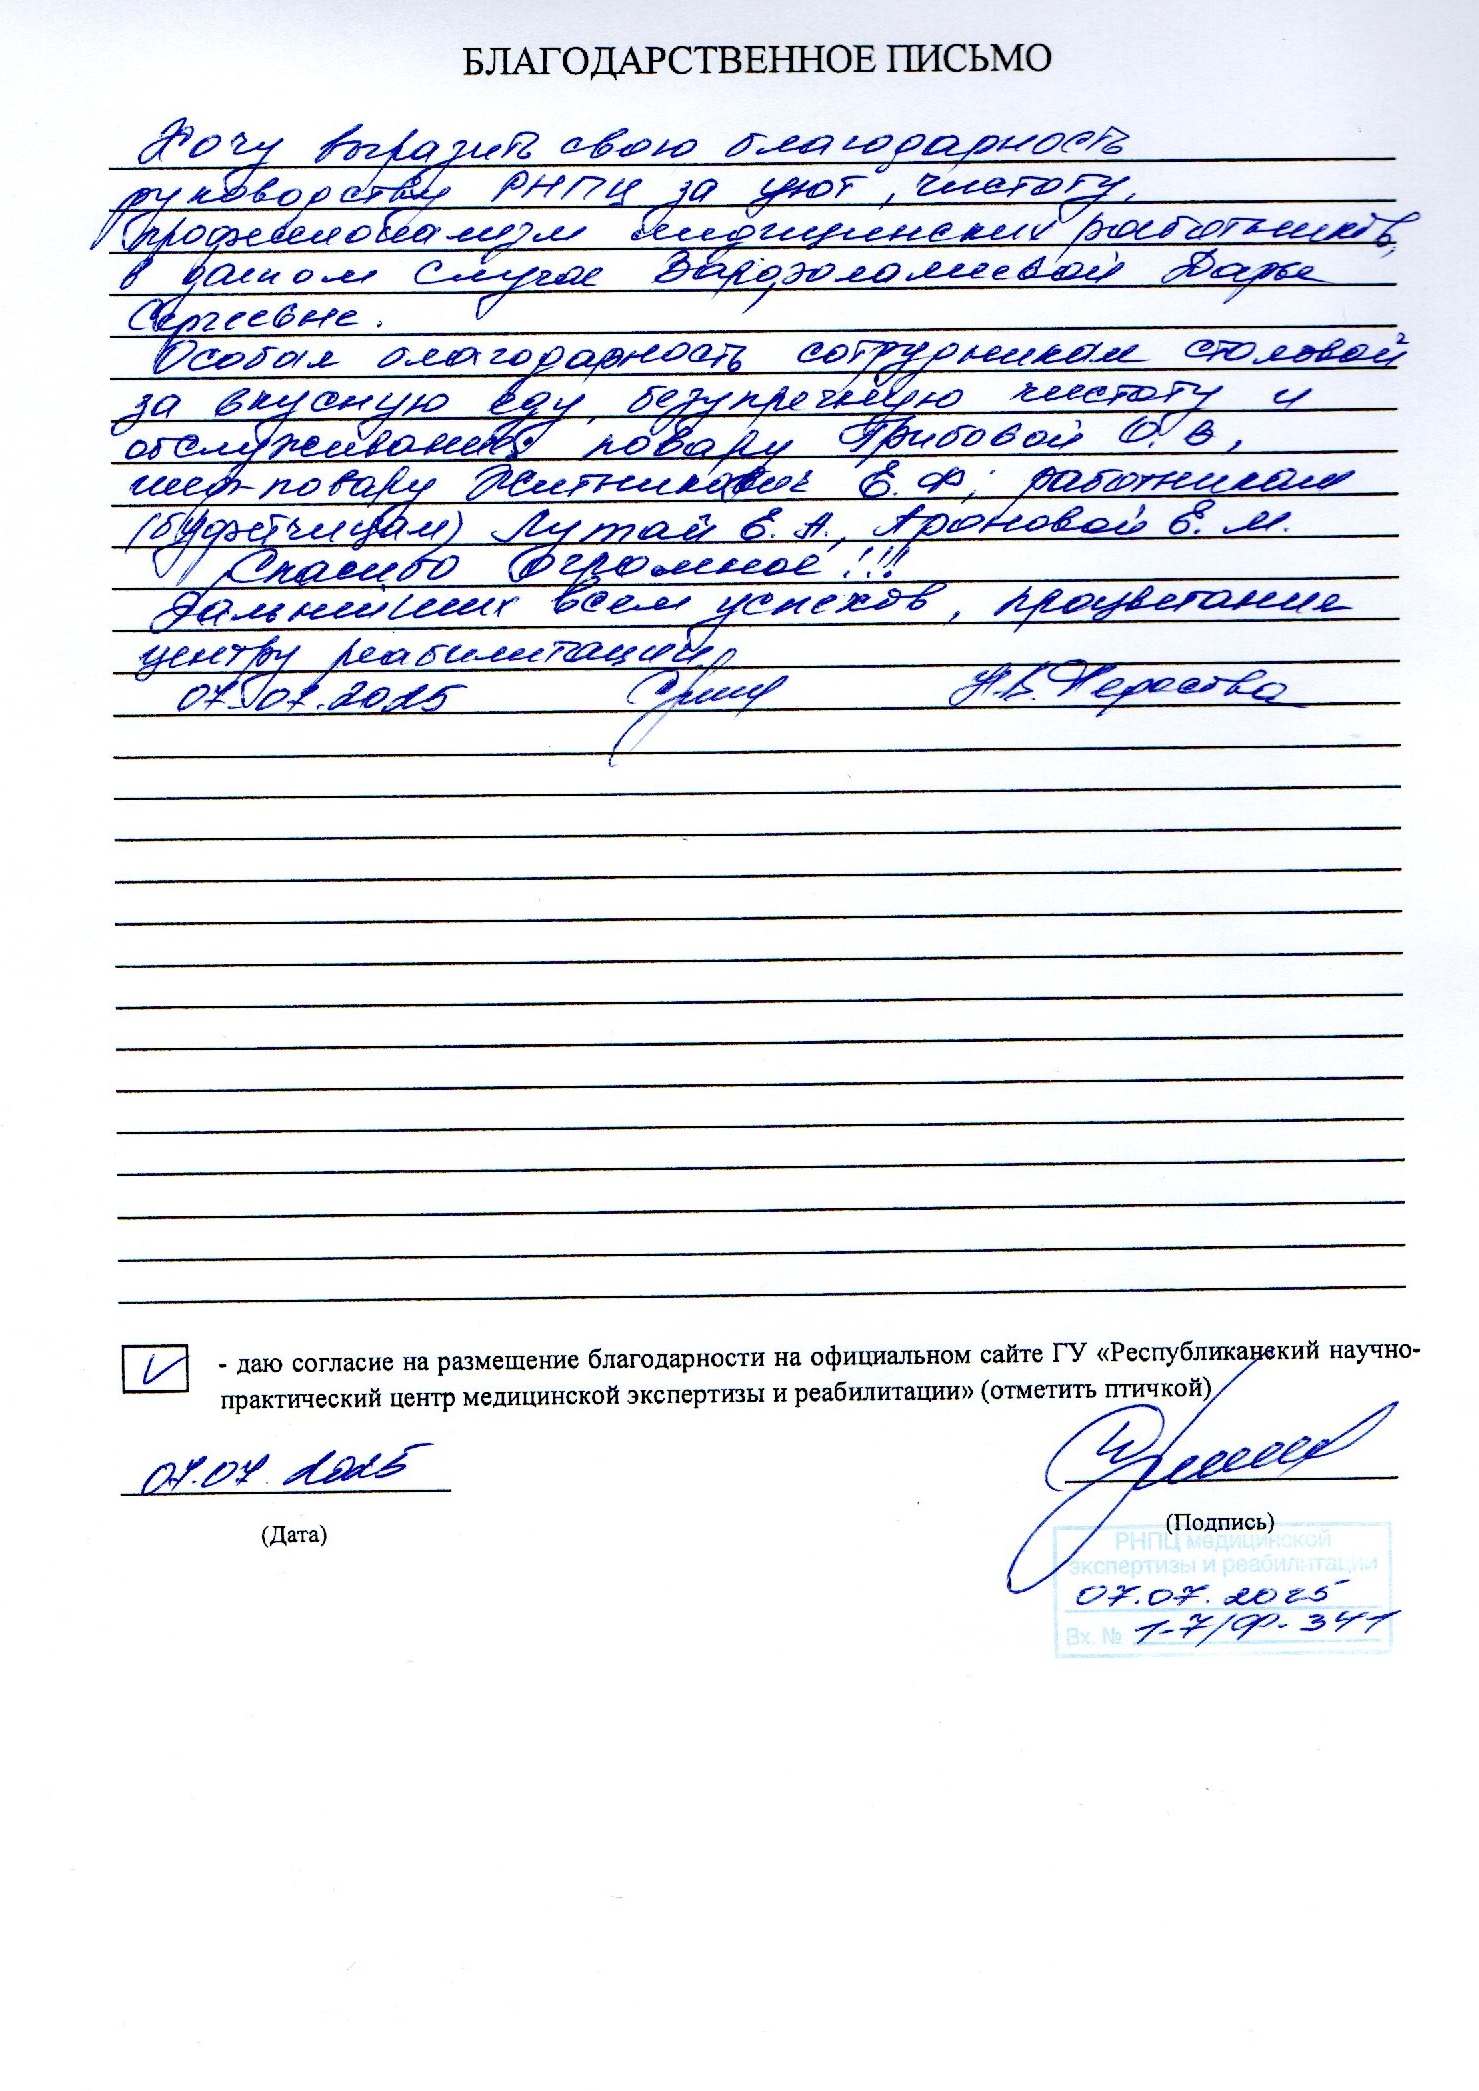 БЛАГОДАРСТВЕННОЕ ПИСЬМО
Хочу выразить свою благодарность
руководству РНПЦ за уют, чистоту,
профессионализм медицинских работников,
в данном случае Варфоломеевой Дарье
Сергеевне.
Особая благодарность сотрудникам столовой
за вкусную еду, безупречную чистоту и
обслуживание повару Грибовой О.В,
шеф-повару Житникович Е.Ф; работникам
(буфетчицам) Лутай Е.А., Ароновой Е.М.
Спасибо огромное!!!
Дальнейших всем успехов, процветания
центру реабилитации
07.07.2025
- даю согласие на размещение благодарности на официальном сайте ГУ «Республиканский научно-
практический центр медицинской экспертизы и реабилитации» (отметить птичкой)
07.07.2025
(Дата)
(Подпись)
РНПЦ медицинской
экспертизы и реабилитации
07.07.2025
Вх. № 1-7/Ф-341